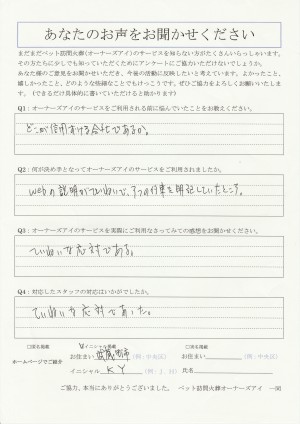 あなたのお声をお聞かせください
まだまだペット訪問火葬(オーナーズアイ)のサービスを知らない方がたくさんいらっしゃいます。
その方たちに少しでも知っていただくためにアンケートにご協力いただけないでしょうか。
あなた様のご意見をお聞かせいただき、今後の活動に反映したいと考えています。よかったこと、
嬉しかったこと、どのような些細なことでもけっこうです。ぜひご協力をよろしくお願いいたしま
す。(できるだけ具体的に書いていただけると助かります)
Q1:オーナーズアイのサービスをご利用される前に悩んでいたことをお教えください。
どこが信用おける会社であるか。
Q2:何が決め手となってオーナーズアイのサービスをご利用されましたか。
webの説明がていねいで、7つの約束を明記していたところ。
Q3:オーナーズアイのサービスを実際にご利用なさってみての感想をお聞かせください。
ていねいな応対である。
Q4:対応したスタッフの対応はいかがでしたか。
ていねいな応対であった。
□実名掲載 ☑イニシャル掲載 □匿名掲載
ホームページでご紹介
お住まい 武蔵野市 (例:中央区) お住まい (例:中央区)
イニシャル K Y (例:J.M) 氏名
ご協力、本当にありがとうございました。 ペット訪問火葬オーナーズアイ 一同